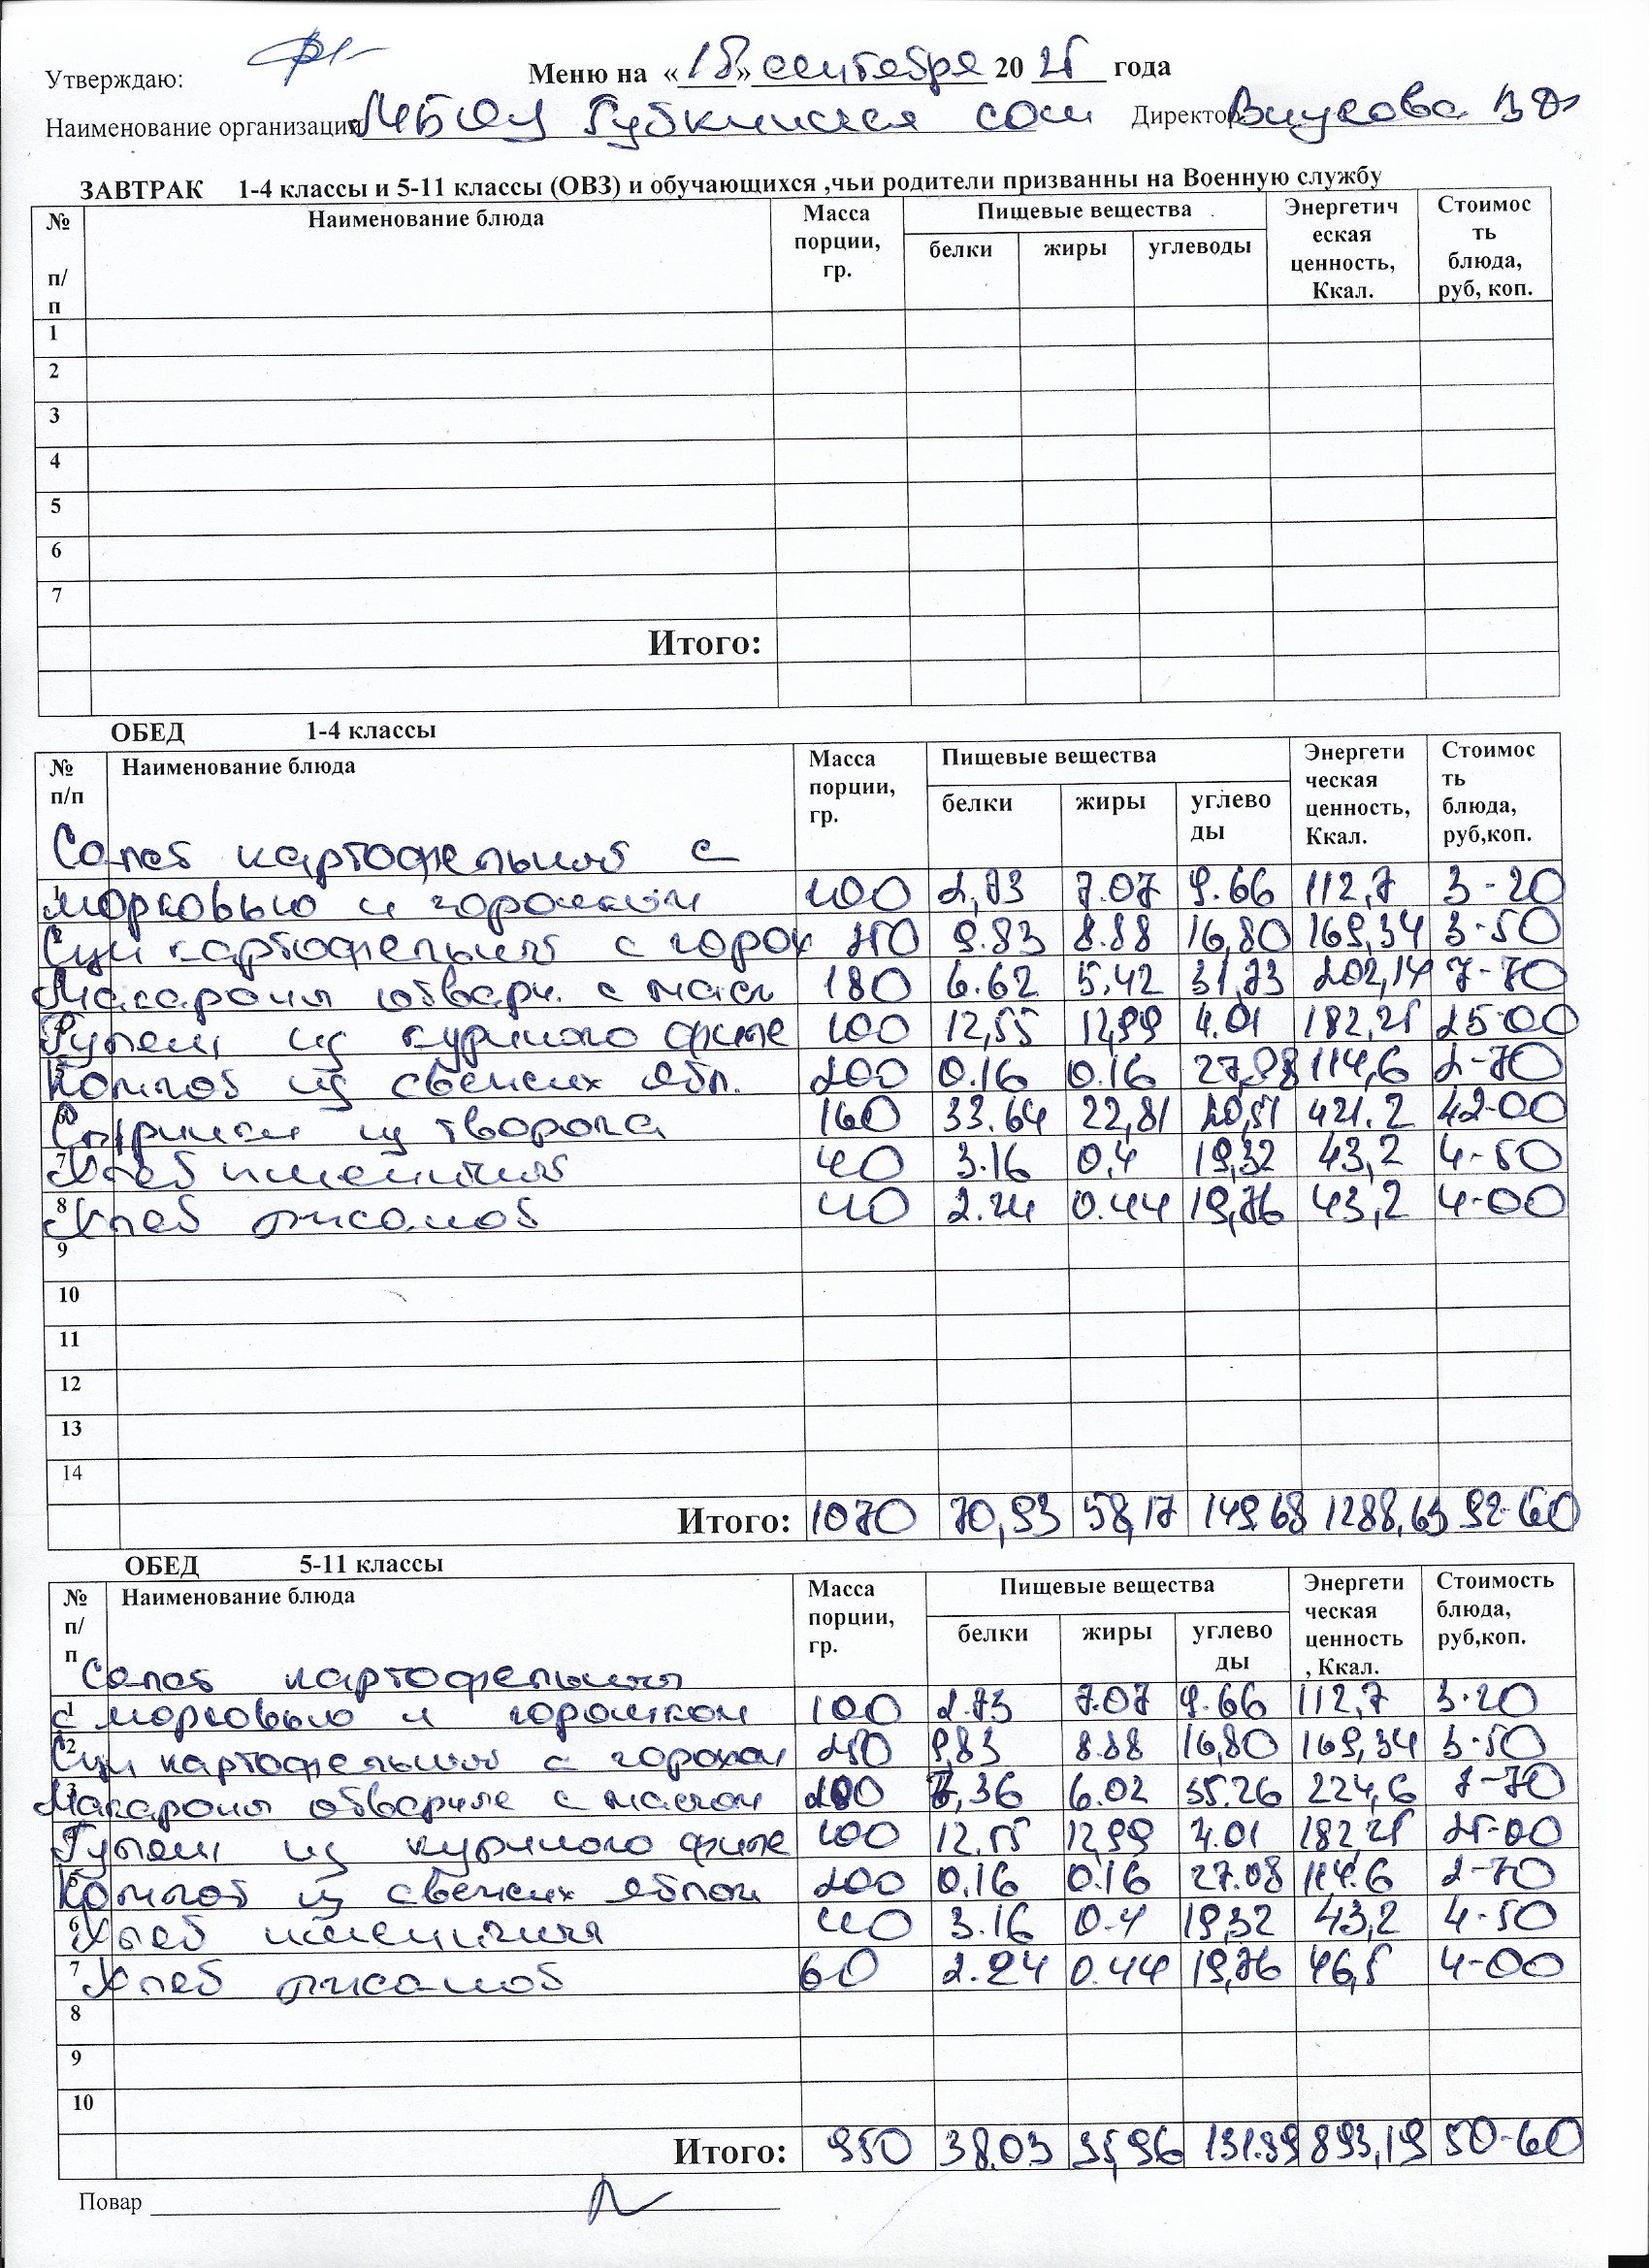 Утверждаю:
Меню на «18» сентября 2025 года
Наименование организации МБОУ Губкинская сош Директор
ЗАВТРАК 1-4 классы и 5-11 классы (ОВЗ) и обучающихся ,чьи родители призванны на Военную службу
№ п/п Наименование блюда Масса порции, гр. Пищевые вещества Энергетическая ценность, Ккал. Стоимость блюда, руб, коп.
белки жиры углеводы
1
2
3
4
5
6
7
Итого:
ОБЕД 1-4 классы
№ п/п Наименование блюда Масса порции, гр. Пищевые вещества Энергетическая ценность, Ккал. Стоимость блюда, руб,коп.
белки жиры углеводы
Салат картофельный с
1 морковью и горошком 100 2,73 7.07 9.66 112,7 3-20
2 Суп картофельный с горох 250 9.83 8.88 16,80 169,34 3-50
3 Макароны отварн. с масл 180 6.62 5,42 31,73 202,14 7-70
4 Рулет из куриного филе 100 12,55 12,99 4.01 182,25 25-00
5 Компот из свежих ябл. 200 0.16 0.16 27,98 114,6 2-70
6 Сырники из творога 160 33.64 22,81 20,51 421.2 42-00
7 Хлеб пшеничный 40 3.16 0,4 19,32 43,2 4-50
8 Хлеб ржаной 40 2.24 0.44 19,76 43,2 4-00
9
10
11
12
13
14
Итого: 1070 70,93 58,17 149.68 1288,63 92-60
ОБЕД 5-11 классы
№ п/п Наименование блюда Масса порции, гр. Пищевые вещества Энергетическая ценность, Ккал. Стоимость блюда, руб,коп.
белки жиры углеводы
Салат картофельный
1 с морковью и горошком 100 2.73 7.07 9.66 112,7 3-20
2 Суп картофельный с горохом 250 9,83 8.88 16,80 169,34 3-50
3 Макароны отварные с маслом 200 7,36 6.02 35.26 224,6 7-70
4 Рулет из куриного филе 100 12,55 12,99 4.01 182,25 25-00
5 Компот из свежих яблок 200 0.16 0.16 27.08 114.6 2-70
6 Хлеб пшеничный 40 3.16 0.4 19,32 43,2 4-50
7 Хлеб ржаной 60 2.24 0.44 19,76 46,5 4-00
8
9
10
Итого: 950 38.03 35,96 131.89 893,19 50-60
Повар